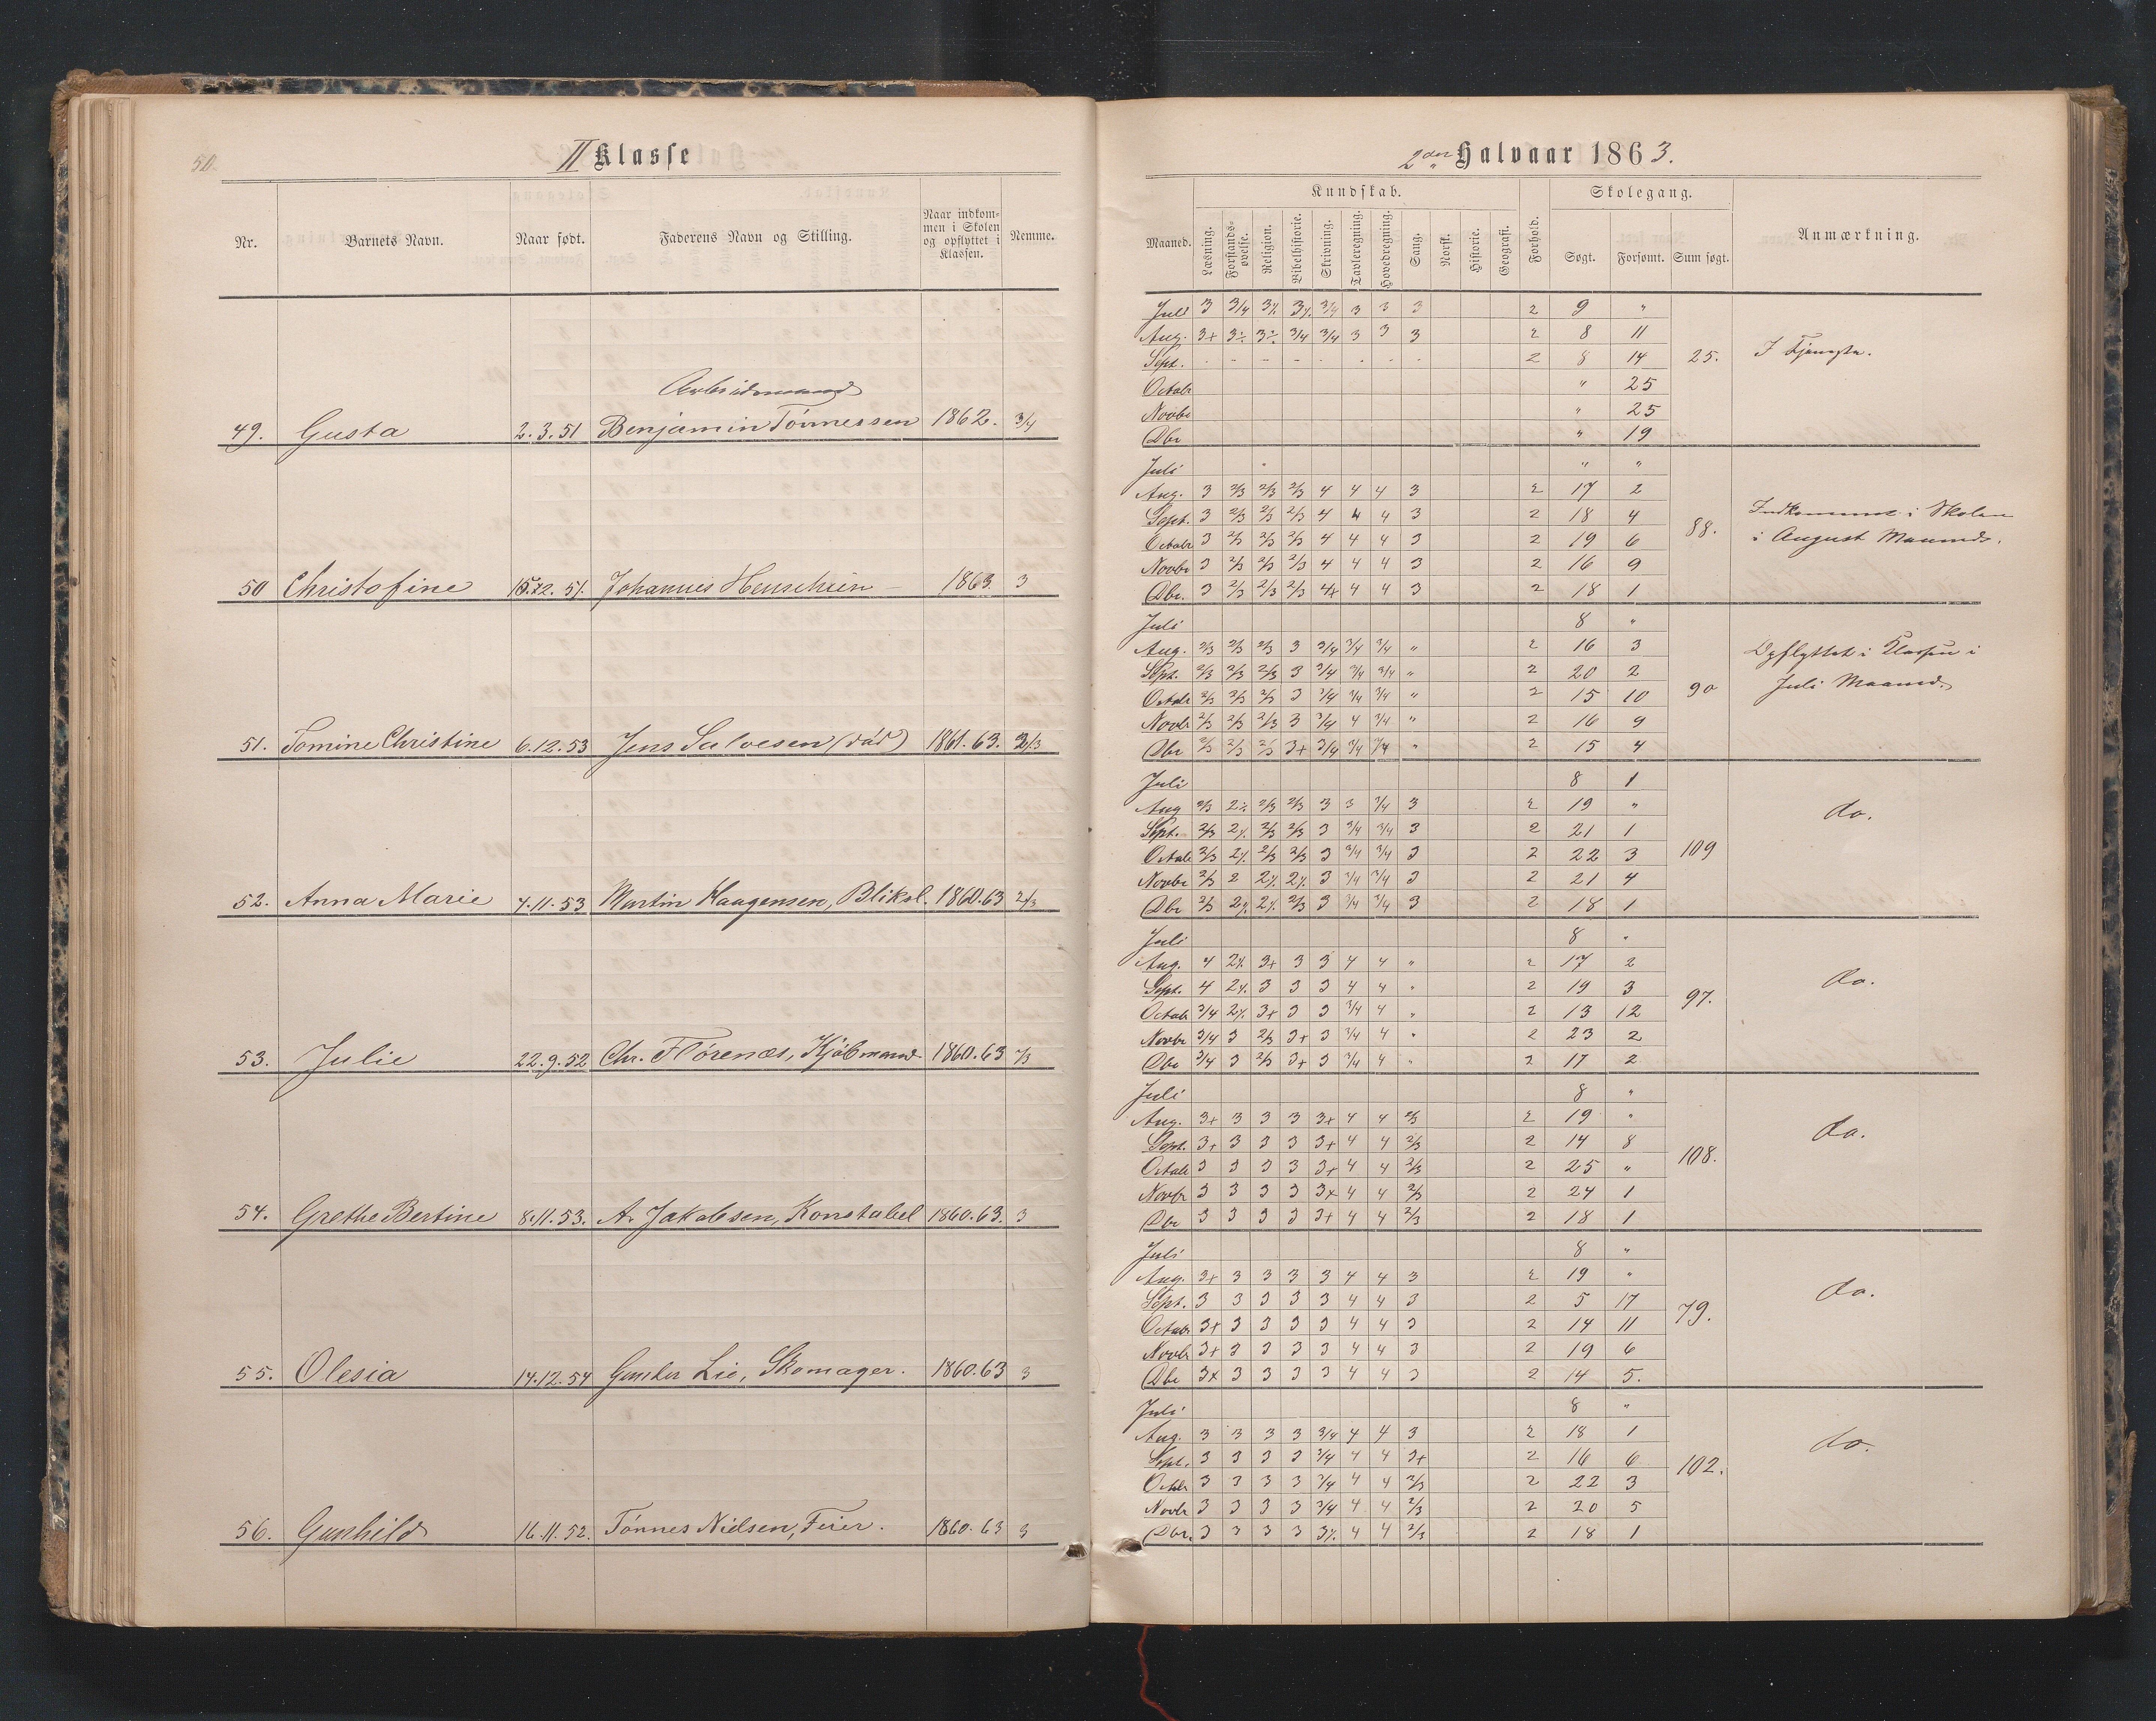 50.
II Klasse
Nr.
Barnets Navn.
Naar født.
Faderens Navn og Stilling.
Naar indkom-
men i Skolen
og opflyttet i
Klassen.
Nemme.
Arbeidsmand
49. Gusta 2.3.51 Benjamin Tønnessen 1862. 3/4
50 Christofine 15.12.51. Johannes Henschien 1863 3
51. Tomine Christine 6.12.53 Jens Salvesen (død) 1861.63. 2/3
52. Anna Marie 4.11.53 Martin Haagensen, Bliksl. 1860.63 2/3
53. Julie 22.9.52 Chr. Flørenæs, Kjøbmand 1860.63
54. Grethe Bertine 8.11.53. A. Jakobsen, Konstabel 1860.63. 3
55. Olesia 14.12.54 Gunder Lie, Skomager. 1860.63 3
56. Gunhild 16.11.52. Tønnes Nielsen, Feier. 1860.63 3
2den Halvaar 1863.
Maaned.
Kundskab.
Læsning.
Forstands-
øvelse.
Religion.
Bibelhistorie.
Skrivning.
Tavleregning.
Hovedregning.
Sang.
Norsk.
Historie.
Geografi.
Forhold.
Skolegang.
Søgt.
Forsømt.
Sum søgt.
Anmærkning.
Juli 3 3/4 3% 3% 3/4 3 3 3 2 9 "
Aug. 3+ 3÷ 3÷ 3/4 3/4 3 3 3 2 8 11
Sept. - - - - - - - - 2 8 14 25. I Tjeneste.
Octobr " 25
Novbr " 25
Dbr " 19
Juli " "
Aug. 3 2/3 2/3 2/3 4 4 4 3 2 17 2
Sept. 3 2/3 2/3 2/3 4 4 4 3 2 18 4 88. Indkommet i Skolen
Octobr 3 2/3 2/3 2/3 4 4 4 3 2 19 6 i August Maaned.
Novbr 3 2/3 2/3 2/3 4 4 4 3 2 16 9
Dbr. 3 2/3 2/3 2/3 4+ 4 4 3 2 18 1
Juli 8 "
Aug. 2/3 2/3 2/3 3 3/4 3/4 3/4 " 2 16 3 Opflyttet i Klassen i
Sept. 2/3 2/3 2/3 3 3/4 3/4 3/4 " 2 20 2 90 Juli Maaned.
Octobr 2/3 2/3 2/3 3 3/4 3/4 3/4 " 2 15 10
Novbr 2/3 2/3 2/3 3 3/4 4 3/4 " 2 16 9
Dbr 2/3 2/3 2/3 3+ 3/4 3/4 3/4 " 2 15 4
Juli 8 1
Aug 2/3 2% 2/3 2/3 3 3 3/4 3 2 19 " do.
Sept. 2/3 2% 2/3 2/3 3 3/4 3/4 3 2 21 1
Octobr 2/3 2% 2/3 2/3 3 3/4 3/4 3 2 22 3 109
Novbr 2/3 2 2% 2% 3 3/4 3/4 3 2 21 4
Dbr 2/3 2% 2% 2/3 3 3/4 3/4 3 2 18 1
Juli 8 "
Aug. 4 2% 3+ 3 3 4 4 " 2 17 2
Sept. 4 2% 3 3 3 4 4 " 2 19 3 97. do.
Octobr 3/4 2% 3+ 3 3 3/4 4 " 2 13 12
Novbr 3/4 3 2/3 3+ 3 3/4 4 " 2 23 2
Dbr 3/4 3 2/3 3+ 3 3/4 4 " 2 17 2
Juli 8 "
Aug. 3+ 3 3 3 3+ 4 4 2/3 2 19 "
Sept. 3+ 3 3 3 3+ 4 4 2/3 2 14 8 108. do.
Octobr 3 3 3 3 3+ 4 4 2/3 2 25 "
Novbr 3 3 3 3 3+ 4 4 2/3 2 24 1
Dbr 3 3 3 3 3+ 4 4 2/3 2 18 1
Juli 8 "
Aug. 3+ 3 3 3 3 4 4 3 2 19 "
Sept. 3 3 3 3 3 4 4 3 2 5 17 79. do.
Octobr 3+ 3 3 3 3 4 4 3 2 14 11
Novbr 3+ 3 3 3 3 4 4 3 2 19 6
Dbr 3+ 3 3 3 3 4 4 3 2 14 5.
Juli 8 "
Aug. 3 3 3 3 3/4 4 4 3 2 18 1 do.
Sept. 3 3 3 3 3/4 4 4 3+ 2 16 6 102.
Octbr 3 3 3 3 3/4 4 4 2/3 2 22 3
Novbr 3 3 3 3 3/4 4 4 2/3 2 20 5
Dbr. 3 3 3 3 3% 4 4 2/3 2 18 1